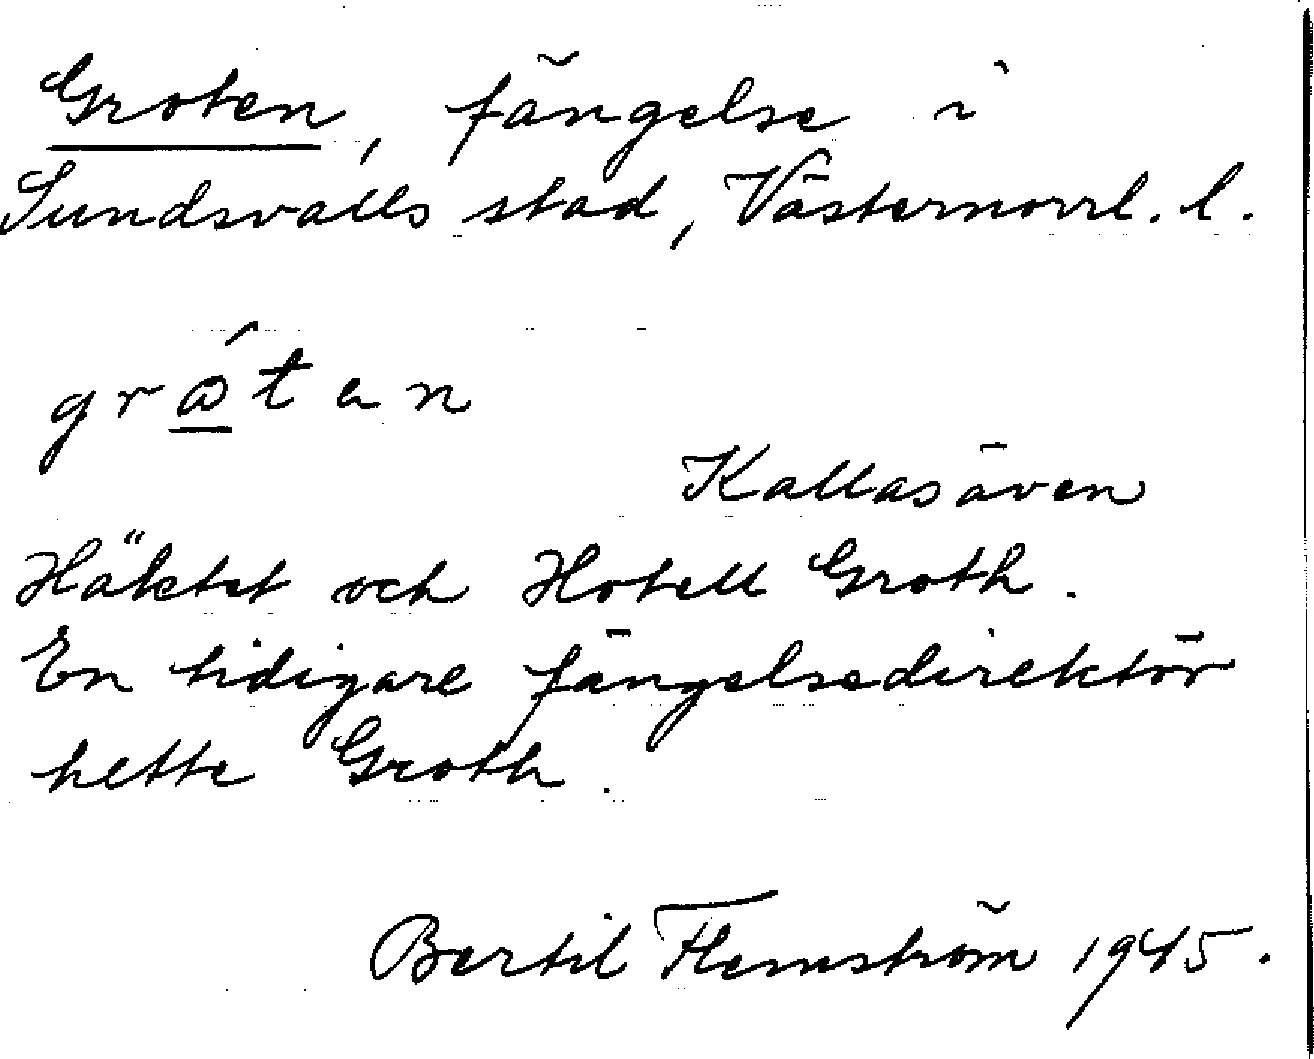 Groten, fängelse i
Sundsvalls stad, Västernorrl. l.
grώten
Kallas även
Häktet och Hotell Groth.
En tidigare fängelsedirektör
hette Groth.
Bertil Flemström 1945.